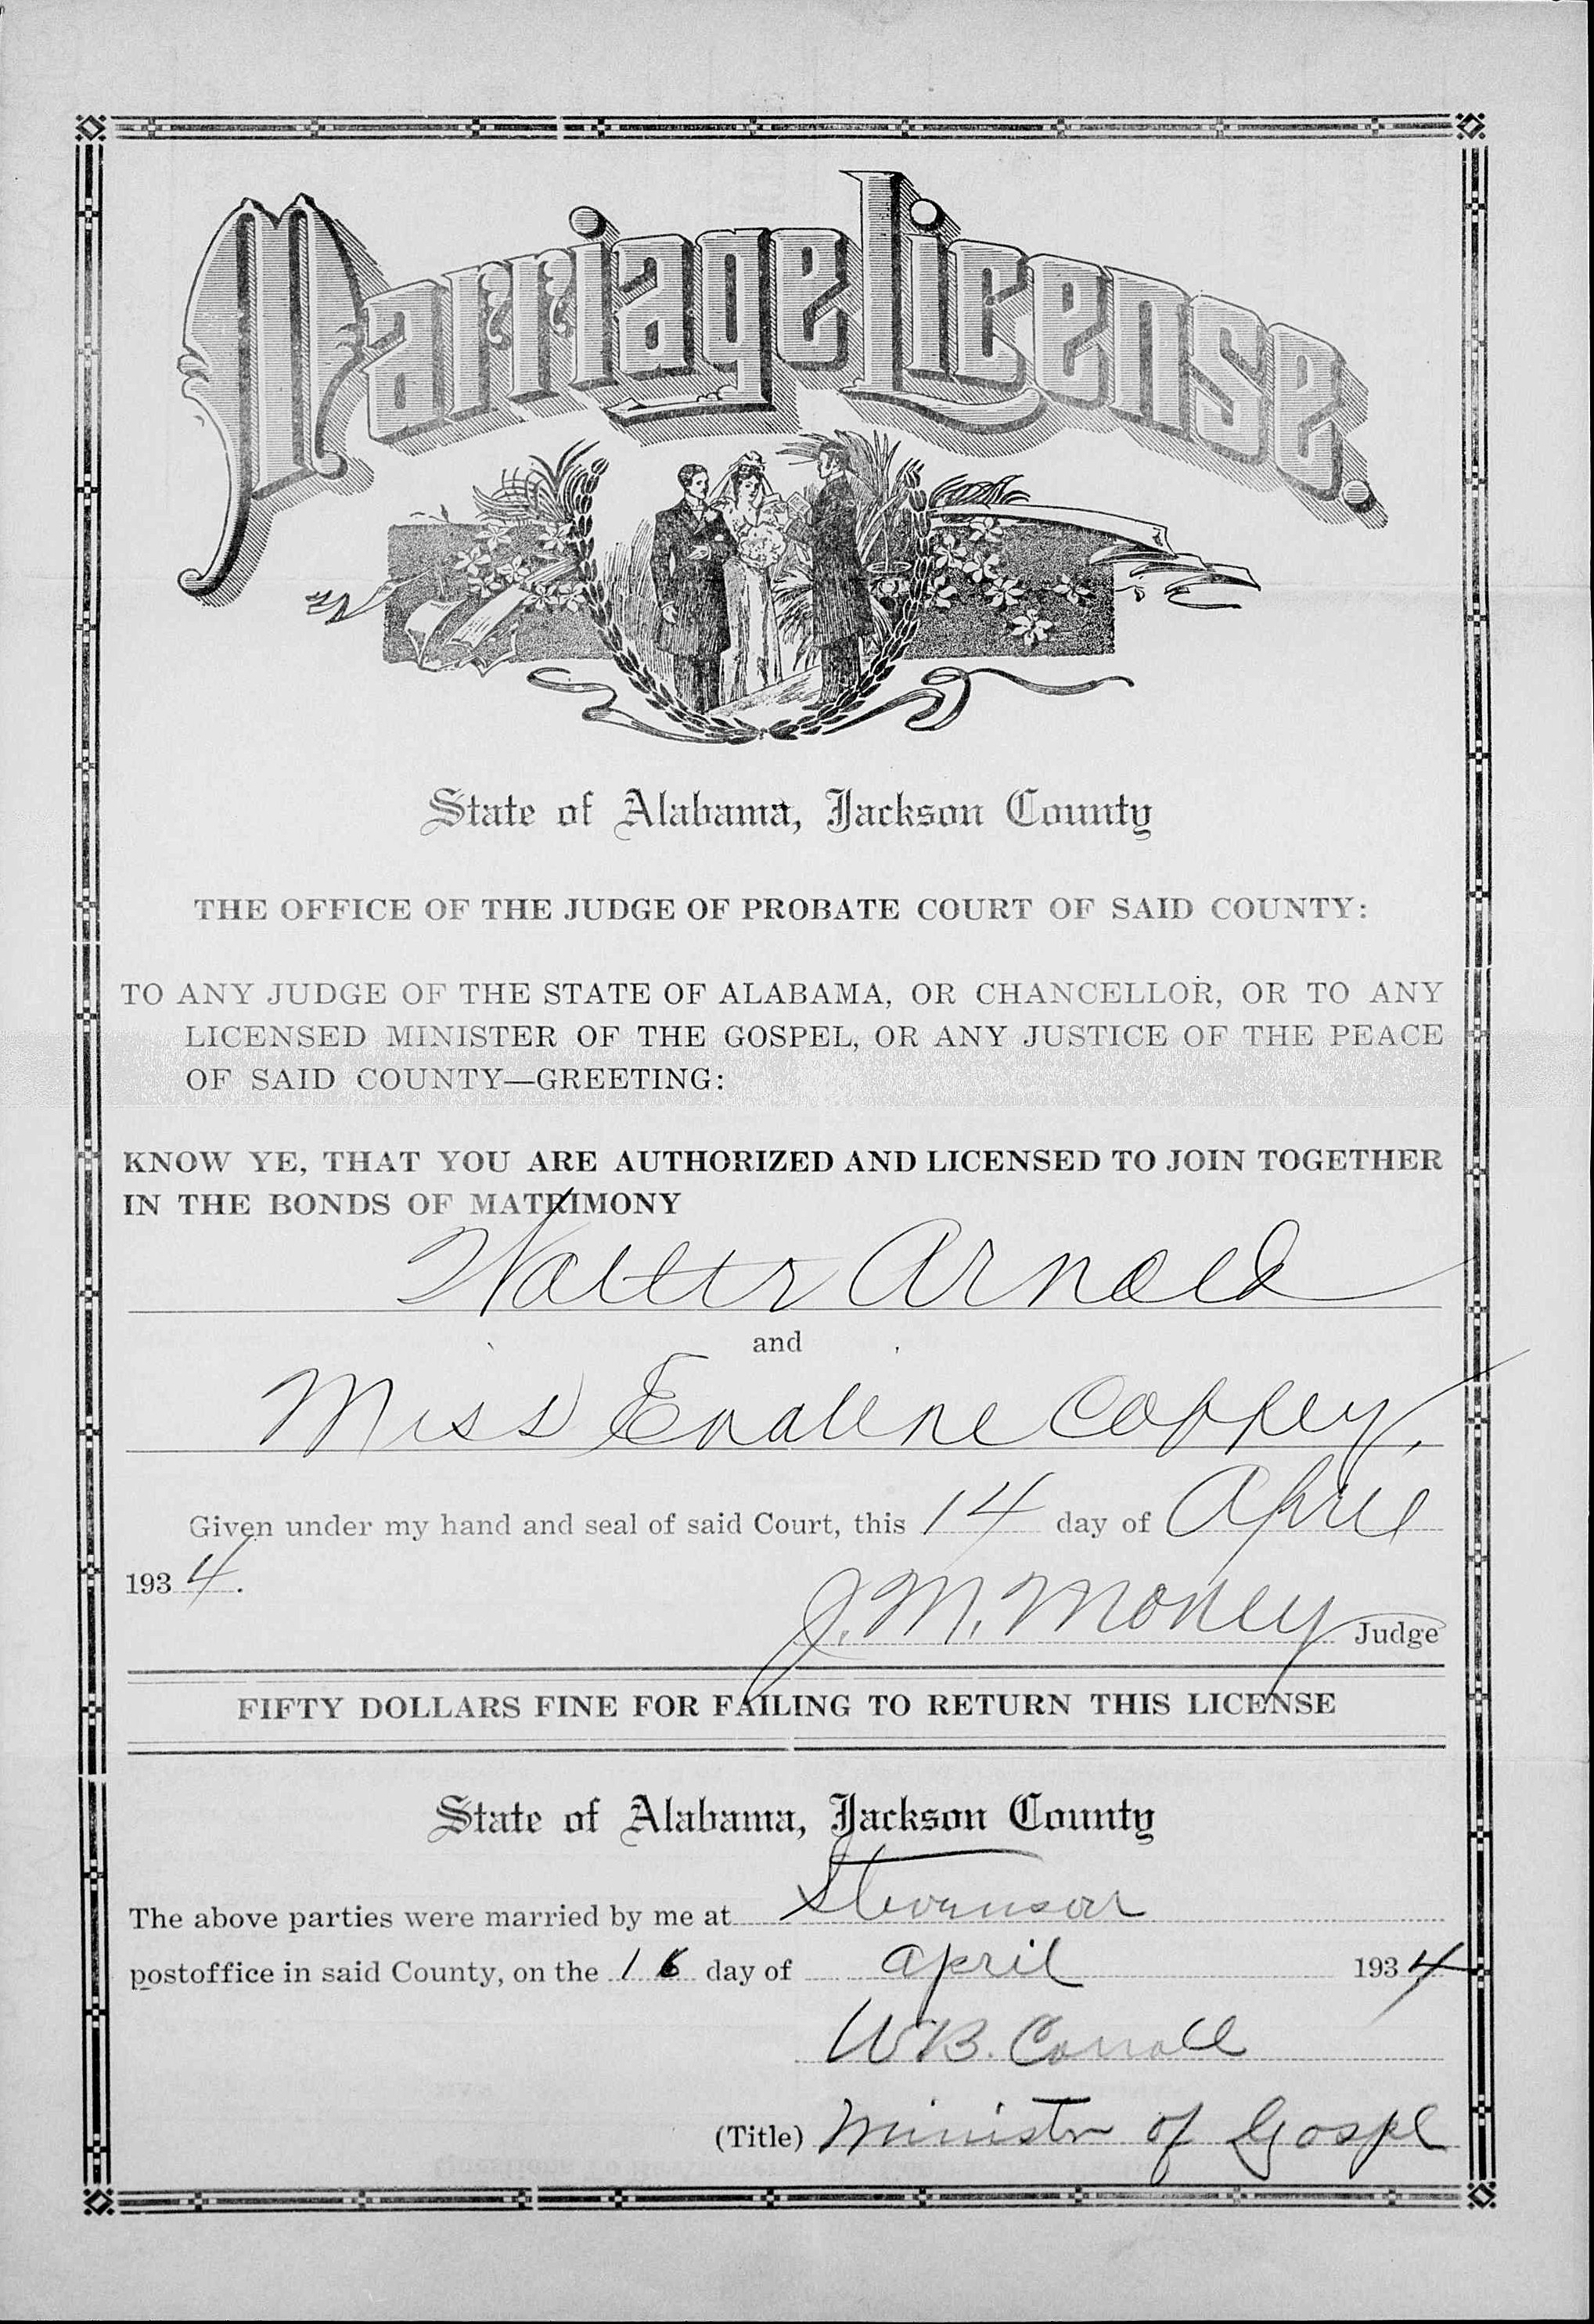 Marriage License.
State of Alabama, Jackson County
THE OFFICE OF THE JUDGE OF PROBATE COURT OF SAID COUNTY:
TO ANY JUDGE OF THE STATE OF ALABAMA, OR CHANCELLOR, OR TO ANY
LICENSED MINISTER OF THE GOSPEL, OR ANY JUSTICE OF THE PEACE
OF SAID COUNTY—GREETING:
KNOW YE, THAT YOU ARE AUTHORIZED AND LICENSED TO JOIN TOGETHER
IN THE BONDS OF MATRIMONY
Walter Arnold
and
Miss Evalene
Given under my hand and seal of said Court, this 14 day of April
1934.
J. M. Money Judge
FIFTY DOLLARS FINE FOR FAILING TO RETURN THIS LICENSE
State of Alabama, Jackson County
The above parties were married by me at Stevenson
postoffice in said County, on the 16 day of April 1934
W B. Carroll
(Title) Minister of Gospel